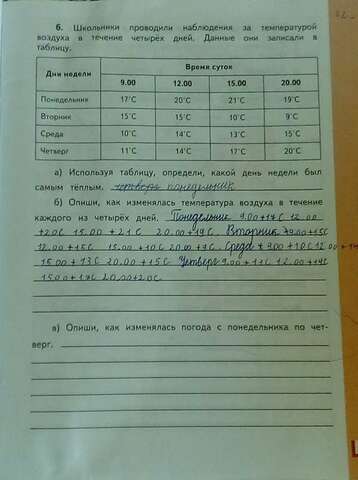 6. Школьники проводили наблюдения за температурой
воздуха в течение четырёх дней. Данные они записали в
таблицу.
Дни недели Время суток
9.00 12.00 15.00 20.00
Понедельник 17°С 20°С 21°С 19°С
Вторник 15°С 15°С 10°С 9°С
Среда 10°С 14°С 13°С 15°С
Четверг 11°С 14°С 17°С 20°С
а) Используя таблицу, определи, какой день недели был
самым тёплым. четверг понедельник
б) Опиши, как изменялась температура воздуха в течение
каждого из четырёх дней. Понедельник 9.00+17С 12.00
+20С 15.00+21С 20.00+19С. Вторник 9.00+15С
12.00+15С 15.00+10С 20.00+9С. Среда 9.00+10С 12.00+14
15.00+13С 20.00+15С Четверг 9.00+11С 12.00+14С
15.00+17С 20.00+20С
в) Опиши, как изменялась погода с понедельника по чет-
верг.